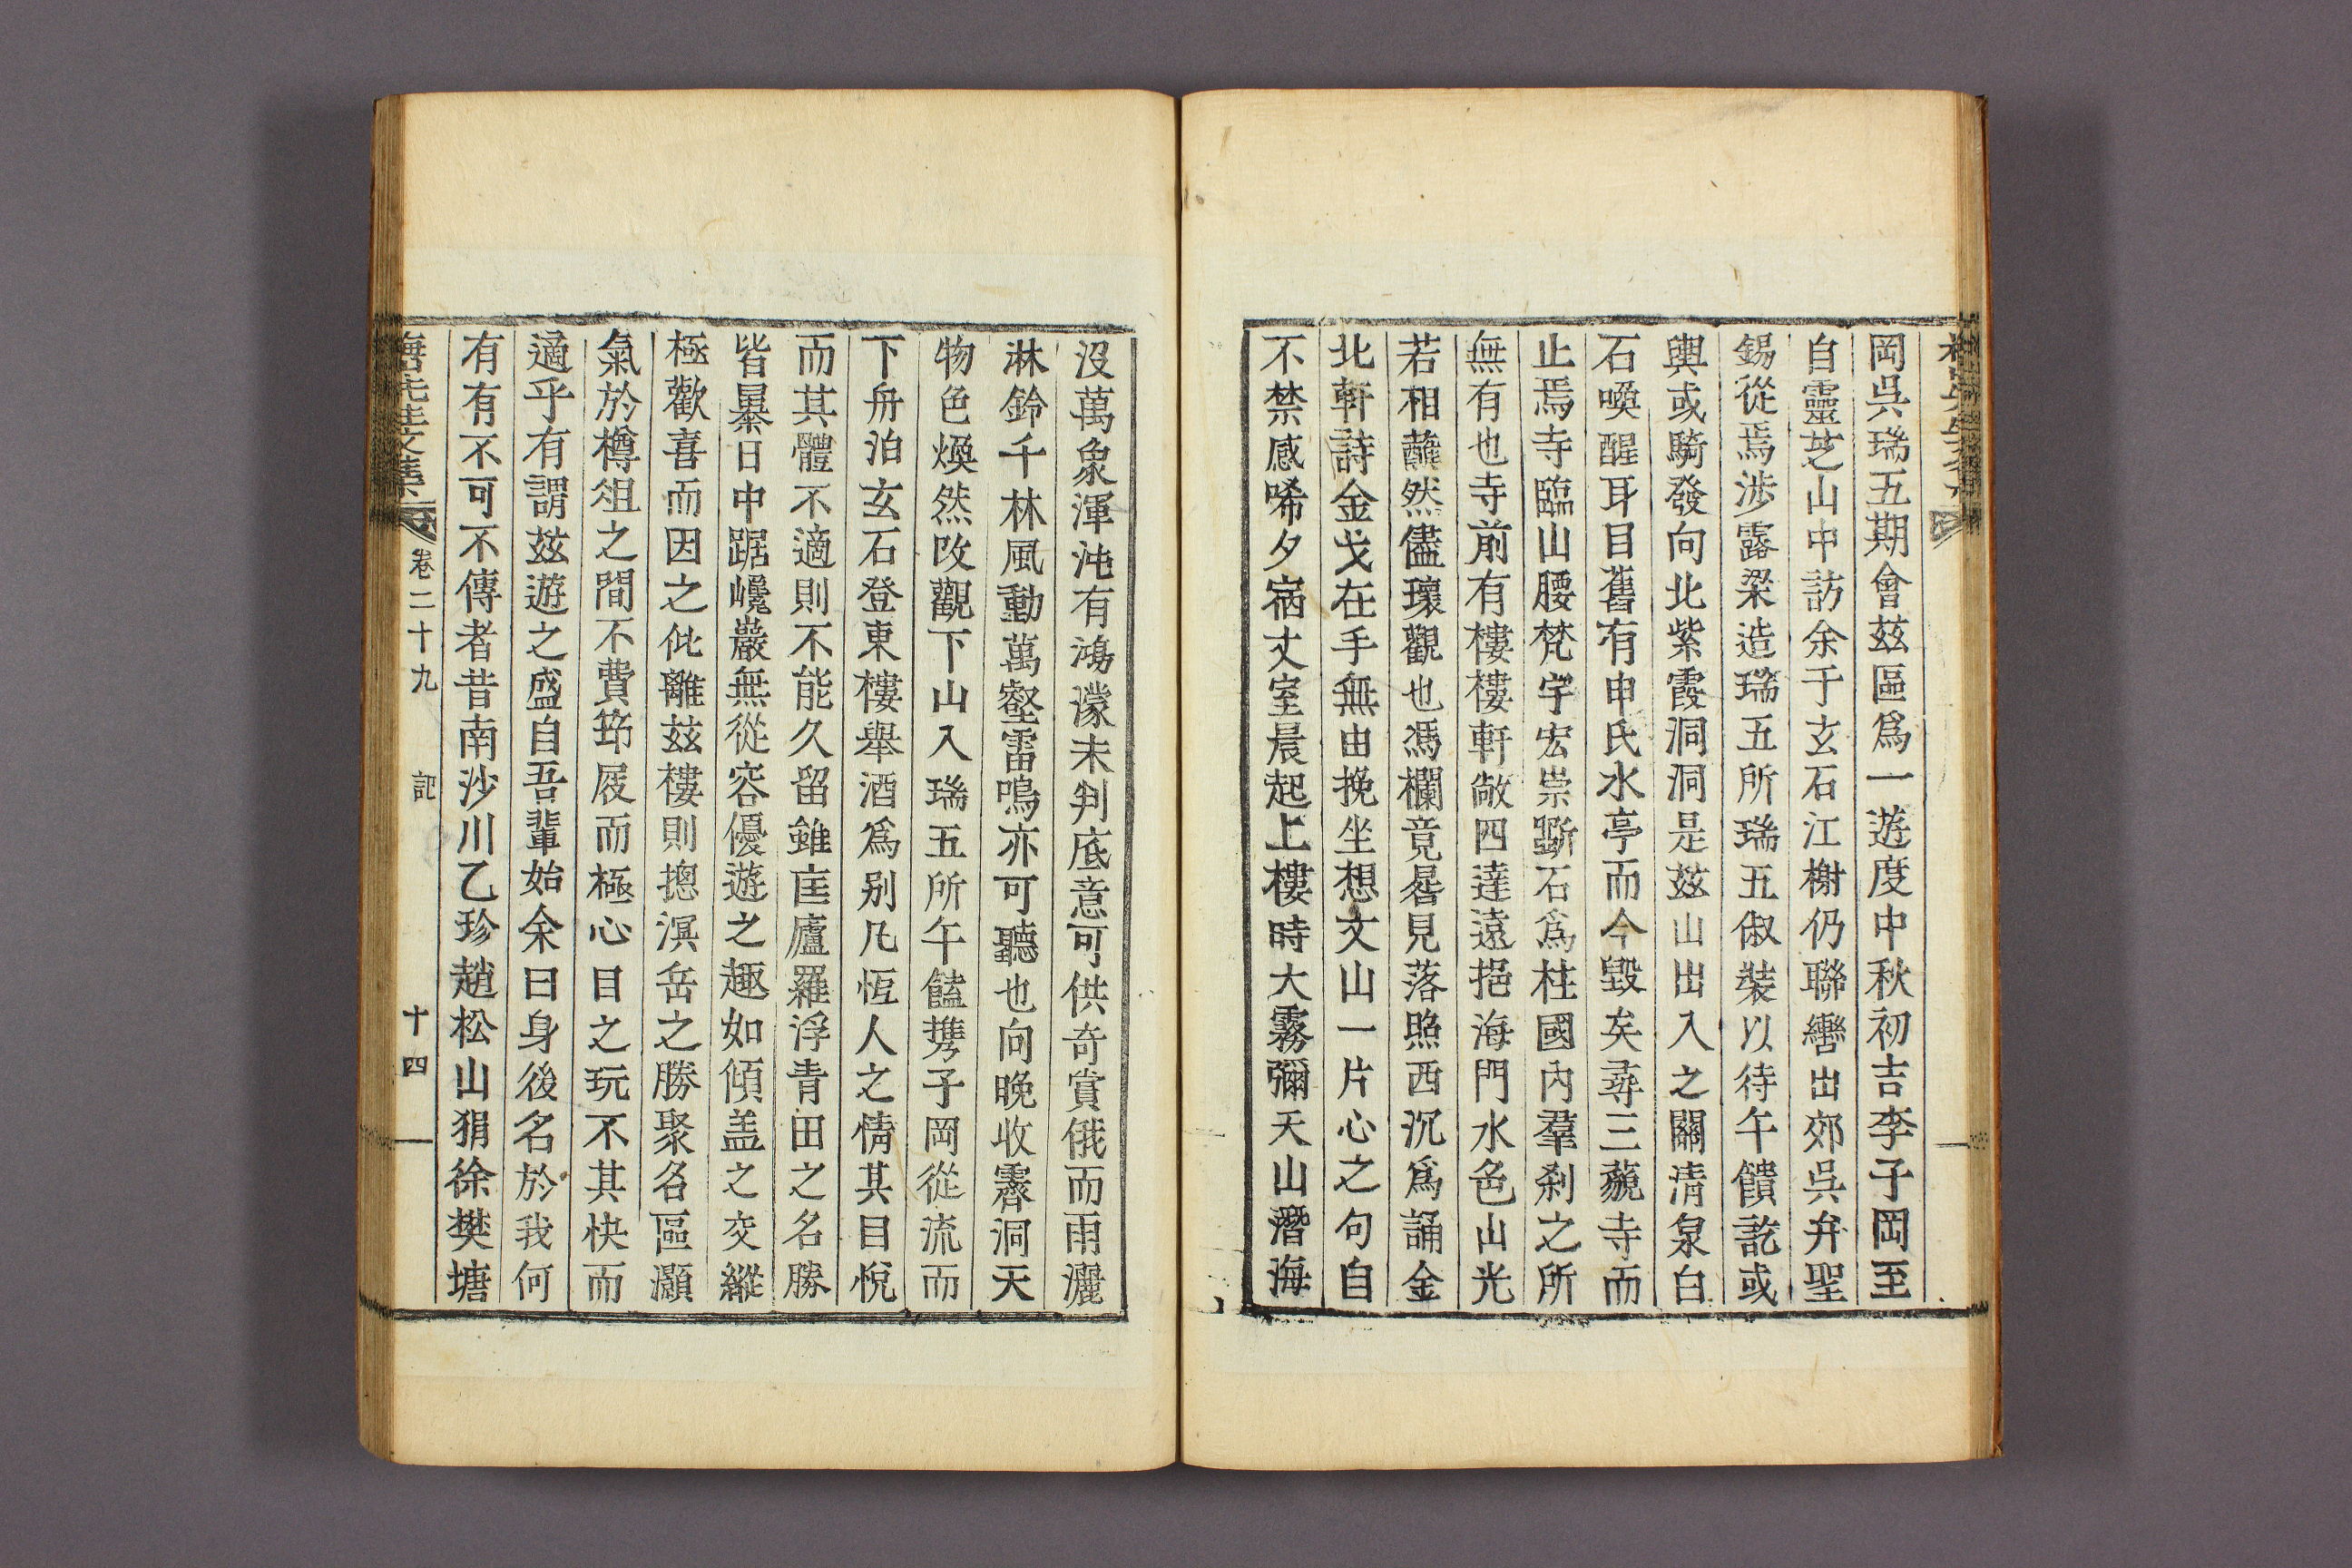 岡吳瑞五期會玆區爲一遊度中秋初吉李子岡至
自靈芝山中訪余于玄石江榭仍聯轡出郊吳弁聖
錫從焉涉露梁造瑞五所瑞五俶裝以待午饋訖或
輿或騎發向北紫霞洞洞是玆山出入之關淸泉白
石喚醒耳目舊有申氏水亭而今毀矣尋三藐寺而
止焉寺臨山腰梵宇宏崇斲石爲柱國內羣刹之所
無有也寺前有樓樓軒敞四達遠挹海門水色山光
若相蘸然儘瓌觀也馮欄竟晷見落照西沉爲誦金
北軒詩金戈在手無由挽坐想文山一片心之句自
不禁感唏夕宿丈室晨起上樓時大霧彌天山潛海
沒萬象渾沌有鴻濛未判底意可供奇賞俄而雨灑
淋鈴千林風動萬壑雷鳴亦可聽也向晚收霽洞天
物色煥然改觀下山入瑞五所午饁携子岡從流而
下舟泊玄石登東樓擧酒爲別凡恆人之情其目悅
而其體不適則不能久留雖匡廬羅浮青田之名勝
皆曓日中踞巉巖無從容優遊之趣如傾盖之交纔
極歡喜而因之仳離玆樓則摠溟岳之勝聚名區灝
氣於樽俎之間不費笻屐而極心目之玩不其快而
適乎有謂玆遊之盛自吾輩始余曰身後名於我何
有有不可不傳者昔南沙川乙珍趙松山狷徐樊塘
卷二十九 記 十四